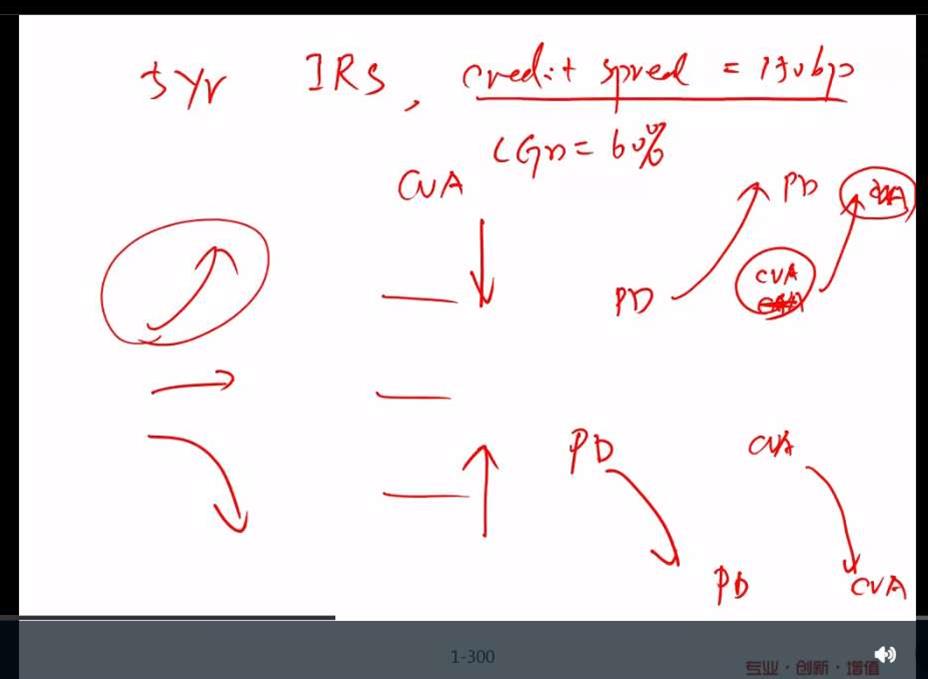 5yr IRS, credit spread = 150bp
LGD = 60%
CVA
PD CVA
CVA
PD
PD CVA
PD CVA
1-300
专业·创新·增值